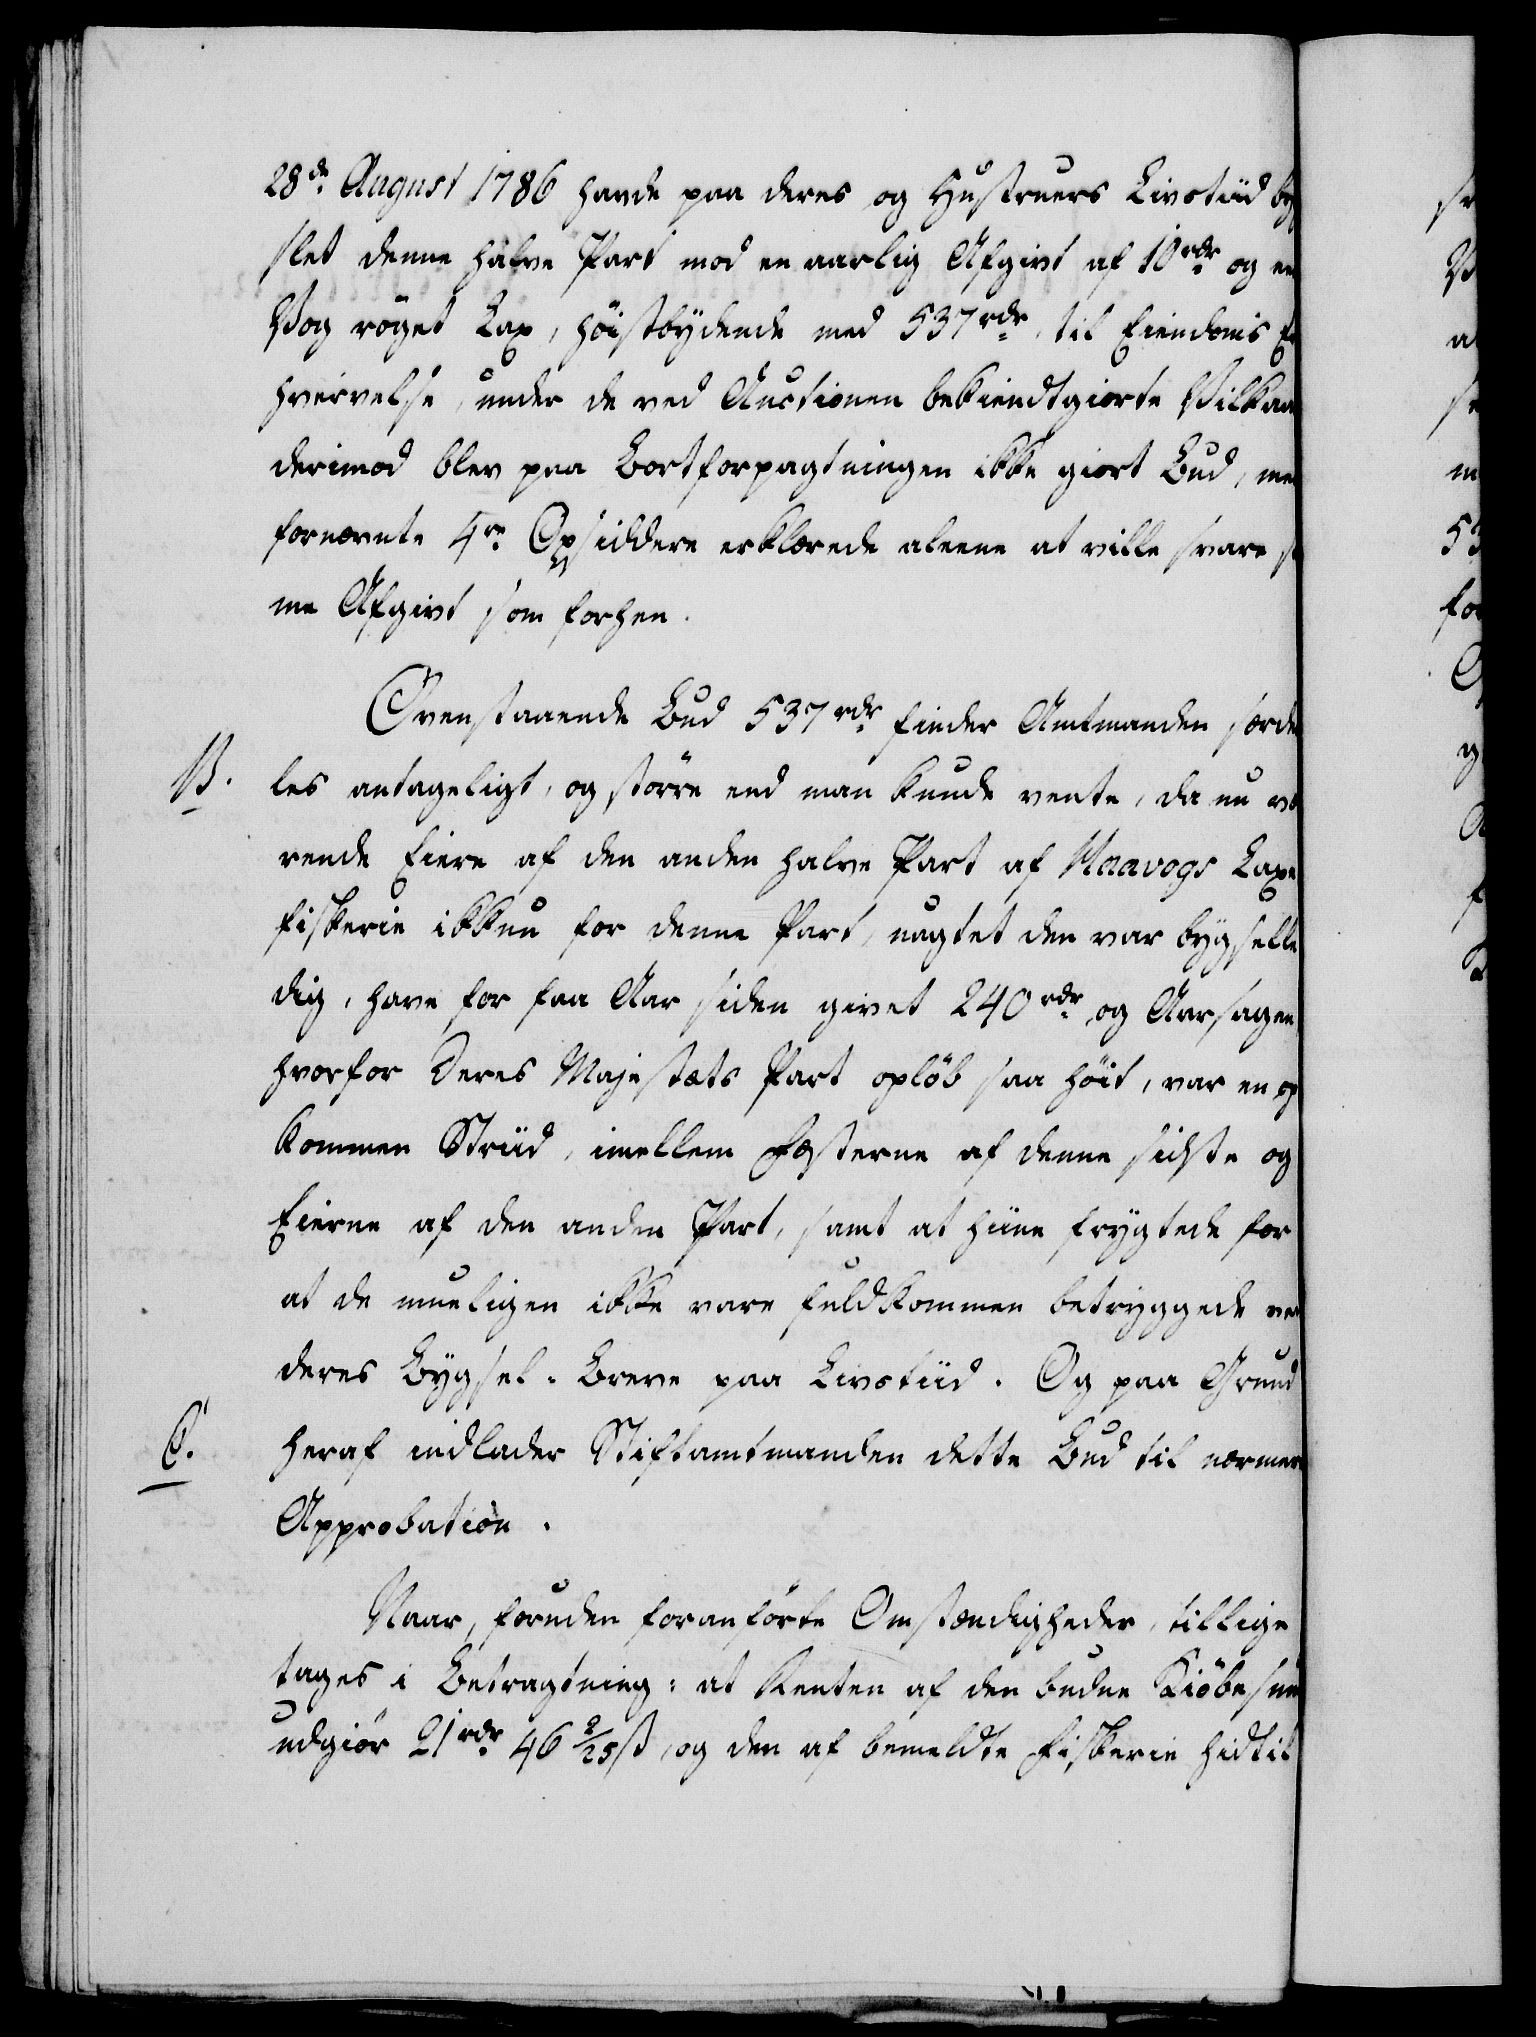 28de August 1786 havde paa deres og Hustruers Livstiid byg
slet denne halve Part mod en aarlig Afgivt af 10 rdr og en
Vog röget Lax, höistbydende med 537 rdr, til Eiendoms Er
hvervelse, under de ved Auctionen bekiendtgiorte Vilkaar
derimod blev paa Bortforpagtningen ikke giort Bud, men
fornævnte 4re Opsiddere erklærede aleene at ville svare sa
me Afgivt som forhen.
Ovenstaaende Bud 537 rdr finder Amtmanden særde
B. les antageligt, og större end man kunde vente, da nu væ
rende Eiere af den anden halve Part af Naavogs Laxe
fiskerie ikkun for denne Part, uagtet den var bygselle
dig, have for faa Aar siden givet 240 rdr og Aarsagen
hvorfor Deres Majestæts Part oplöb saa höit, var en op
kommen Striid, imellem Fæsterne af denne sidste og
Eierne af den anden Part, samt at hiine frygtede for
at de mueligen ikke vare fuldkommen betryggede ved
deres Bygsel-Breve paa Livstiid. Og paa Grund
C. heraf indlader Stiftamtmanden dette Bud til nærmere
Approbation.
Naar, foruden foranförte Omstændigheder, tillige
tages i Betragtning: at Renten af den budne Kiöbesum
udgiör 21 rdr 46 2/25 ß, og den af bemeldte Fiskerie hidtil